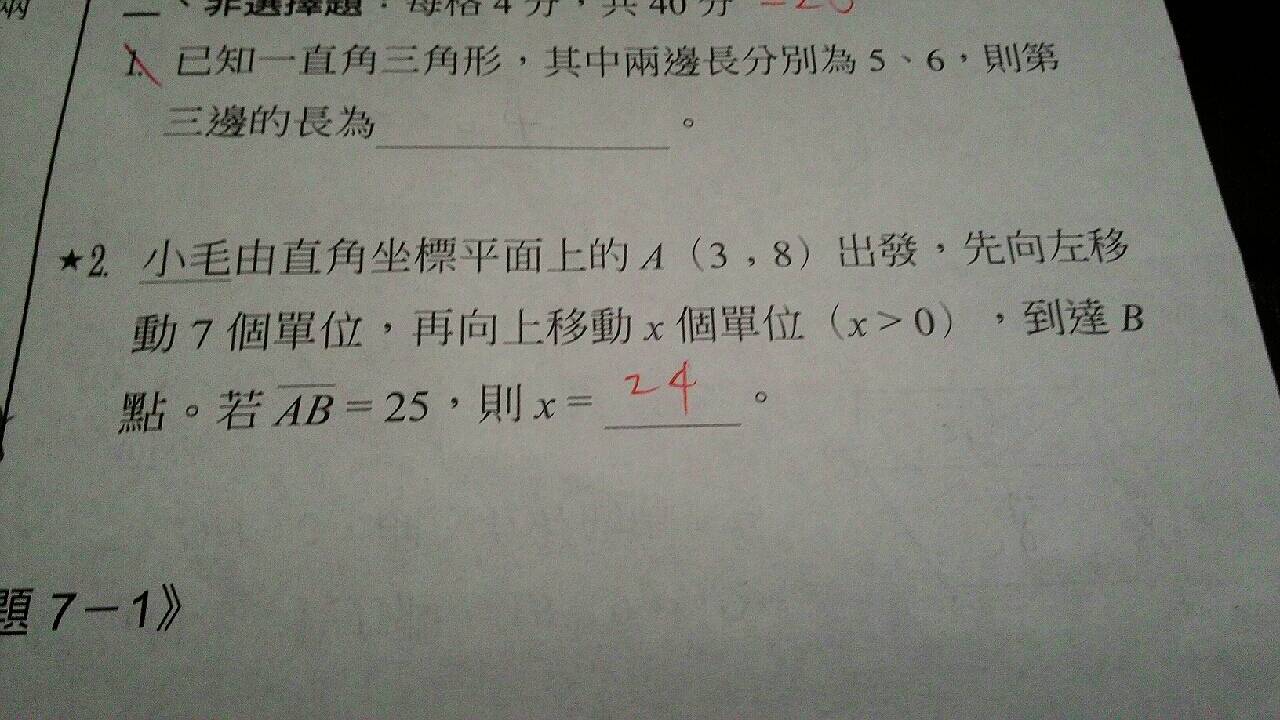 二、非選擇題：每格4分，共40分
1. 已知一直角三角形，其中兩邊長分別為 5、6，則第
三邊的長為　　　　。
★2. 小毛由直角坐標平面上的 A（3 , 8）出發，先向左移
動 7 個單位，再向上移動 x 個單位（x＞0），到達 B
點。若 AB = 25，則 x = 24 。
題 7－1》